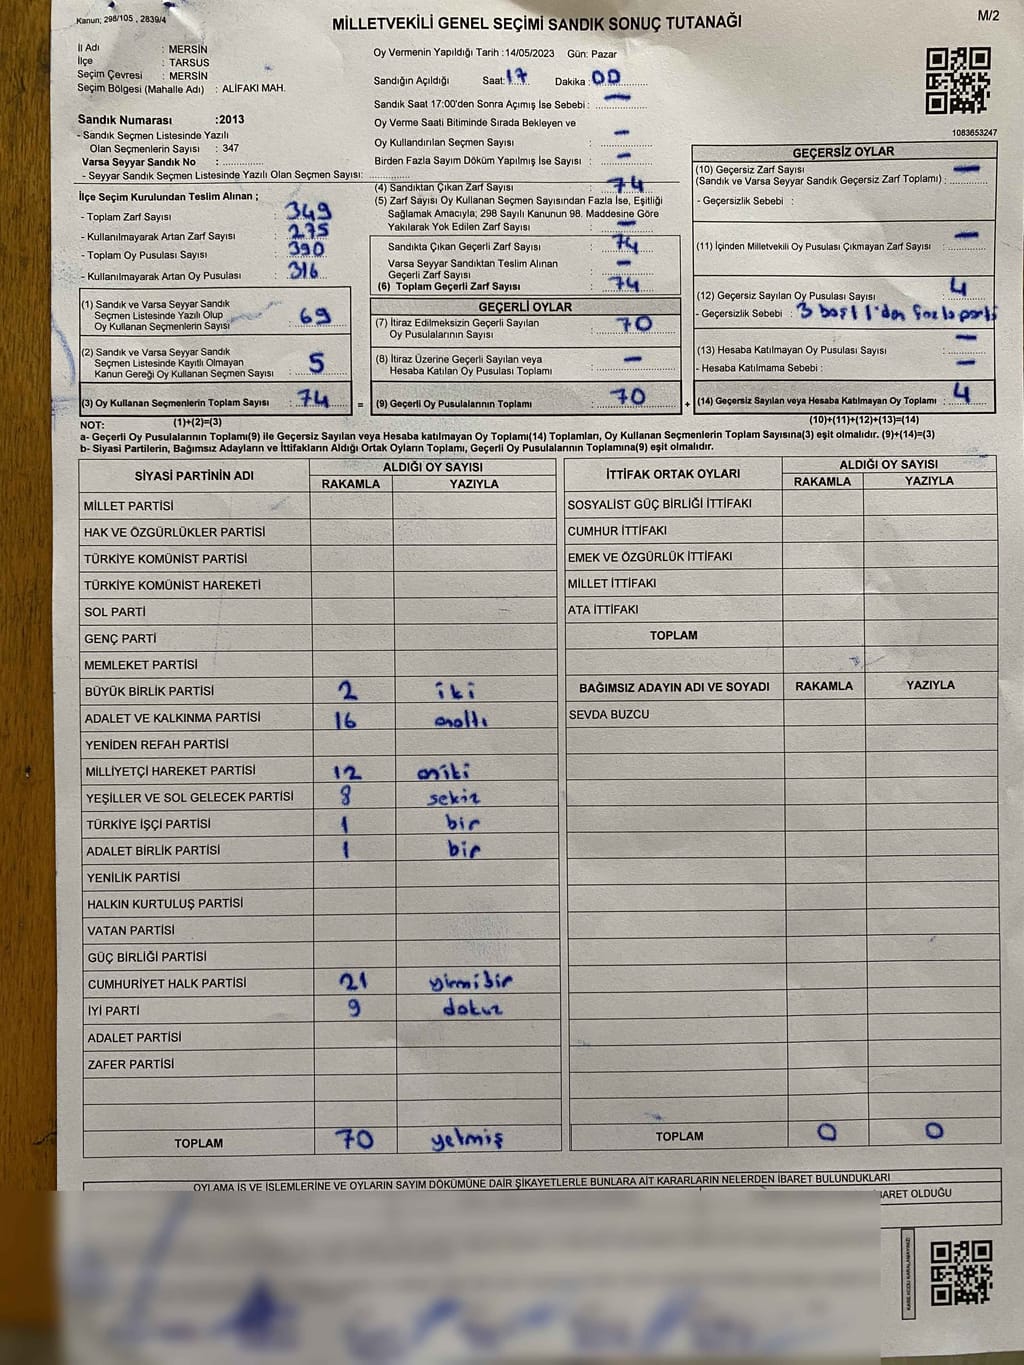 Kanun; 298/105 , 2839/4
MİLLETVEKİLİ GENEL SEÇİMİ SANDIK SONUÇ TUTANAĞI
M/2
İl Adı : MERSİN
İlçe : TARSUS
Seçim Çevresi : MERSİN
Seçim Bölgesi (Mahalle Adı) : ALİFAKI MAH.
Sandık Numarası :2013
- Sandık Seçmen Listesinde Yazılı
Olan Seçmenlerin Sayısı : 347
Varsa Seyyar Sandık No : ..............
- Seyyar Sandık Seçmen Listesinde Yazılı Olan Seçmen Sayısı: ..............
Oy Vermenin Yapıldığı Tarih :14/05/2023 Gün: Pazar
Sandığın Açıldığı Saat:17 Dakika:00
Sandık Saat 17:00'den Sonra Açımış İse Sebebi : —
Oy Verme Saati Bitiminde Sırada Bekleyen ve
Oy Kullandırılan Seçmen Sayısı : —
Birden Fazla Sayım Döküm Yapılmış İse Sayısı : —
1083653247
İlçe Seçim Kurulundan Teslim Alınan ;
- Toplam Zarf Sayısı : 349
- Kullanılmayarak Artan Zarf Sayısı : 275
- Toplam Oy Pusulası Sayısı : 390
- Kullanılmayarak Artan Oy Pusulası : 316
(1) Sandık ve Varsa Seyyar Sandık
Seçmen Listesinde Yazılı Olup
Oy Kullanan Seçmenlerin Sayısı : 69
(2) Sandık ve Varsa Seyyar Sandık
Seçmen Listesinde Kayıtlı Olmayan
Kanun Gereği Oy Kullanan Seçmen Sayısı : 5
(3) Oy Kullanan Seçmenlerin Toplam Sayısı : 74
(1)+(2)=(3)
(4) Sandıktan Çıkan Zarf Sayısı : 74
(5) Zarf Sayısı Oy Kullanan Seçmen Sayısından Fazla İse, Eşitliği
Sağlamak Amacıyla; 298 Sayılı Kanunun 98. Maddesine Göre
Yakılarak Yok Edilen Zarf Sayısı : —
Sandıkta Çıkan Geçerli Zarf Sayısı : 74
Varsa Seyyar Sandıktan Teslim Alınan
Geçerli Zarf Sayısı : —
(6) Toplam Geçerli Zarf Sayısı : 74
GEÇERLİ OYLAR
(7) İtiraz Edilmeksizin Geçerli Sayılan : 70
Oy Pusulasının Sayısı
(8) İtiraz Üzerine Geçerli Sayılan veya : —
Hesaba Katılan Oy Pusulası Toplamı
= (9) Geçerli Oy Pusulalarının Toplamı : 70
GEÇERSİZ OYLAR
(10) Geçersiz Zarf Sayısı —
(Sandık ve Varsa Seyyar Sandık Geçersiz Zarf Toplamı) : ............
- Geçersizlik Sebebi :
(11) İçinden Milletvekili Oy Pusulası Çıkmayan Zarf Sayısı : —
(12) Geçersiz Sayılan Oy Pusulası Sayısı : 4
- Geçersizlik Sebebi : 3 boş 1 1'den fazla parti
(13) Hesaba Katılmayan Oy Pusulası Sayısı : —
- Hesaba Katılmama Sebebi : —
+ (14) Geçersiz Sayılan veya Hesaba Katılmayan Oy Toplamı : 4
(10)+(11)+(12)+(13)=(14)
NOT:
a- Geçerli Oy Pusulalarının Toplamı(9) ile Geçersiz Sayılan veya Hesaba katılmayan Oy Toplamı(14) Toplamları, Oy Kullanan Seçmenlerin Toplam Sayısına(3) eşit olmalıdır. (9)+(14)=(3)
b- Siyasi Partilerin, Bağımsız Adayların ve İttifakların Aldığı Ortak Oyların Toplamı, Geçerli Oy Pusulalarının Toplamına(9) eşit olmalıdır.
SİYASİ PARTİNİN ADI ALDIĞI OY SAYISI
RAKAMLA YAZIYLA
MİLLET PARTİSİ
HAK VE ÖZGÜRLÜKLER PARTİSİ
TÜRKİYE KOMÜNİST PARTİSİ
TÜRKİYE KOMÜNİST HAREKETİ
SOL PARTİ
GENÇ PARTİ
MEMLEKET PARTİSİ
BÜYÜK BİRLİK PARTİSİ 2 iki
ADALET VE KALKINMA PARTİSİ 16 onaltı
YENİDEN REFAH PARTİSİ
MİLLİYETÇİ HAREKET PARTİSİ 12 oniki
YEŞİLLER VE SOL GELECEK PARTİSİ 8 sekiz
TÜRKİYE İŞÇİ PARTİSİ 1 bir
ADALET BİRLİK PARTİSİ 1 bir
YENİLİK PARTİSİ
HALKIN KURTULUŞ PARTİSİ
VATAN PARTİSİ
GÜÇ BİRLİĞİ PARTİSİ
CUMHURİYET HALK PARTİSİ 21 yirmibir
İYİ PARTİ 9 dokuz
ADALET PARTİSİ
ZAFER PARTİSİ
TOPLAM 70 yetmiş
İTTİFAK ORTAK OYLARI ALDIĞI OY SAYISI
RAKAMLA YAZIYLA
SOSYALİST GÜÇ BİRLİĞİ İTTİFAKI
CUMHUR İTTİFAKI
EMEK VE ÖZGÜRLÜK İTTİFAKI
MİLLET İTTİFAKI
ATA İTTİFAKI
TOPLAM
BAĞIMSIZ ADAYIN ADI VE SOYADI RAKAMLA YAZIYLA
SEVDA BUZCU
TOPLAM 0 0
OYLAMA İŞ VE İŞLEMLERİNE VE OYLARIN SAYIM DÖKÜMÜNE DAİR ŞİKAYETLERLE BUNLARA AİT KARARLARIN NELERDEN İBARET BULUNDUKLARI
BARET OLDUĞU
KARE KODU KARALAMAYINIZ!